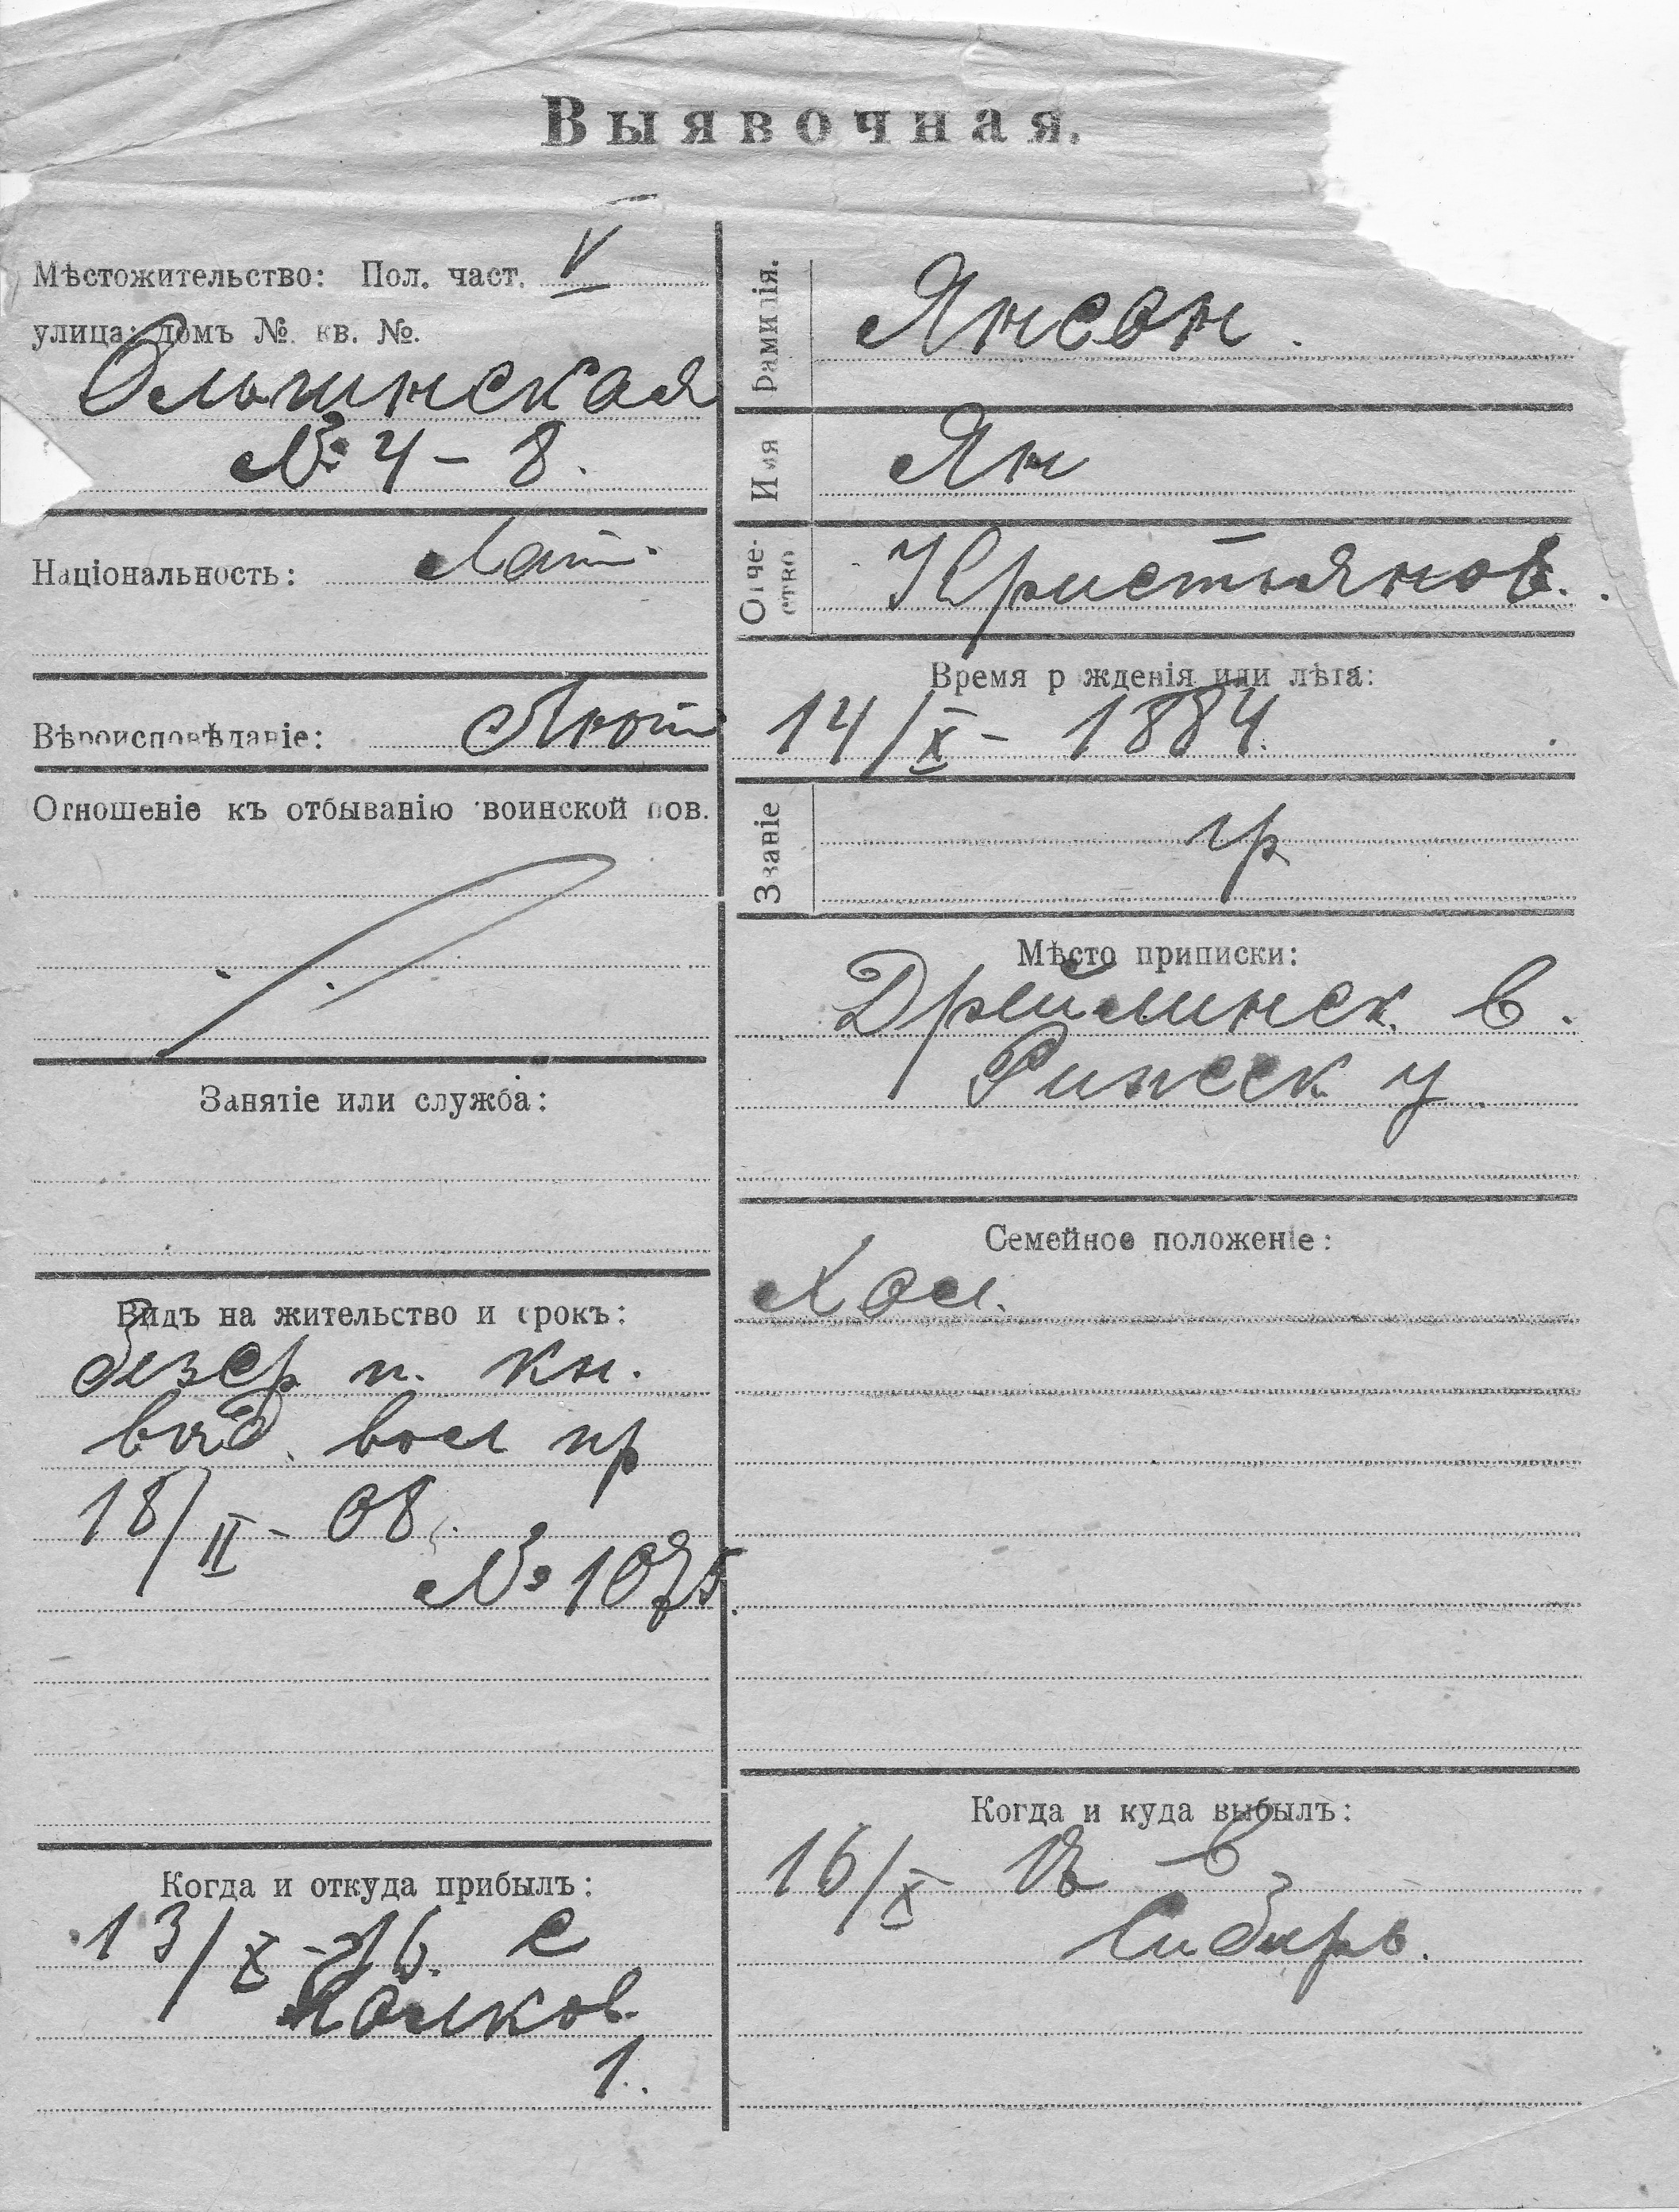 Выявочная.
Мѣстожительство: Пол. част. V
улица; домъ №. кв. №.
Ольгинская
№ 4 - 8.
Національность: Лат.
Вѣроисповѣданіе: Лют.
Отношеніе къ отбыванію воинской пов.
Занятіе или служба:
Видъ на жительство и срокъ:
безср п. кн.
выд. вол пр
18/II - 08.
№ 1075.
Когда и откуда прибылъ:
13/X - 16. с
1.
Фамилія. Янсон.
Имя Ян
Отчество Кристьянов.
Время рожденія или лѣта:
14/X - 1884.
Званіе
Мѣсто приписки:
Дрейлинск. в.
Рижск у.
Семейное положеніе:
Хол.
Когда и куда выбылъ:
16/X в
Сибирь.